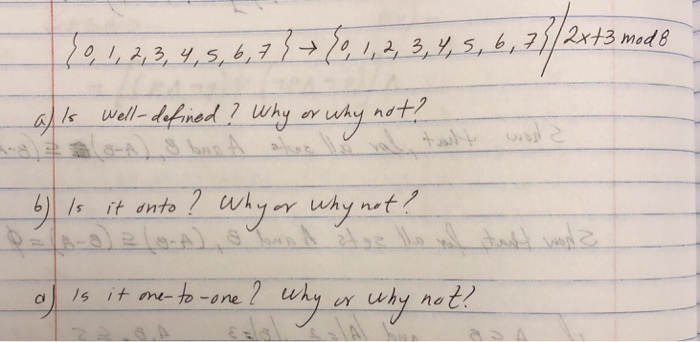 {0, 1, 2, 3, 4, 5, 6, 7} → {0, 1, 2, 3, 4, 5, 6, 7} // 2x+3 mod 8
a) Is well-defined? Why or why not?
b) Is it onto? Why or why not?
c) Is it one-to-one? Why or why not?